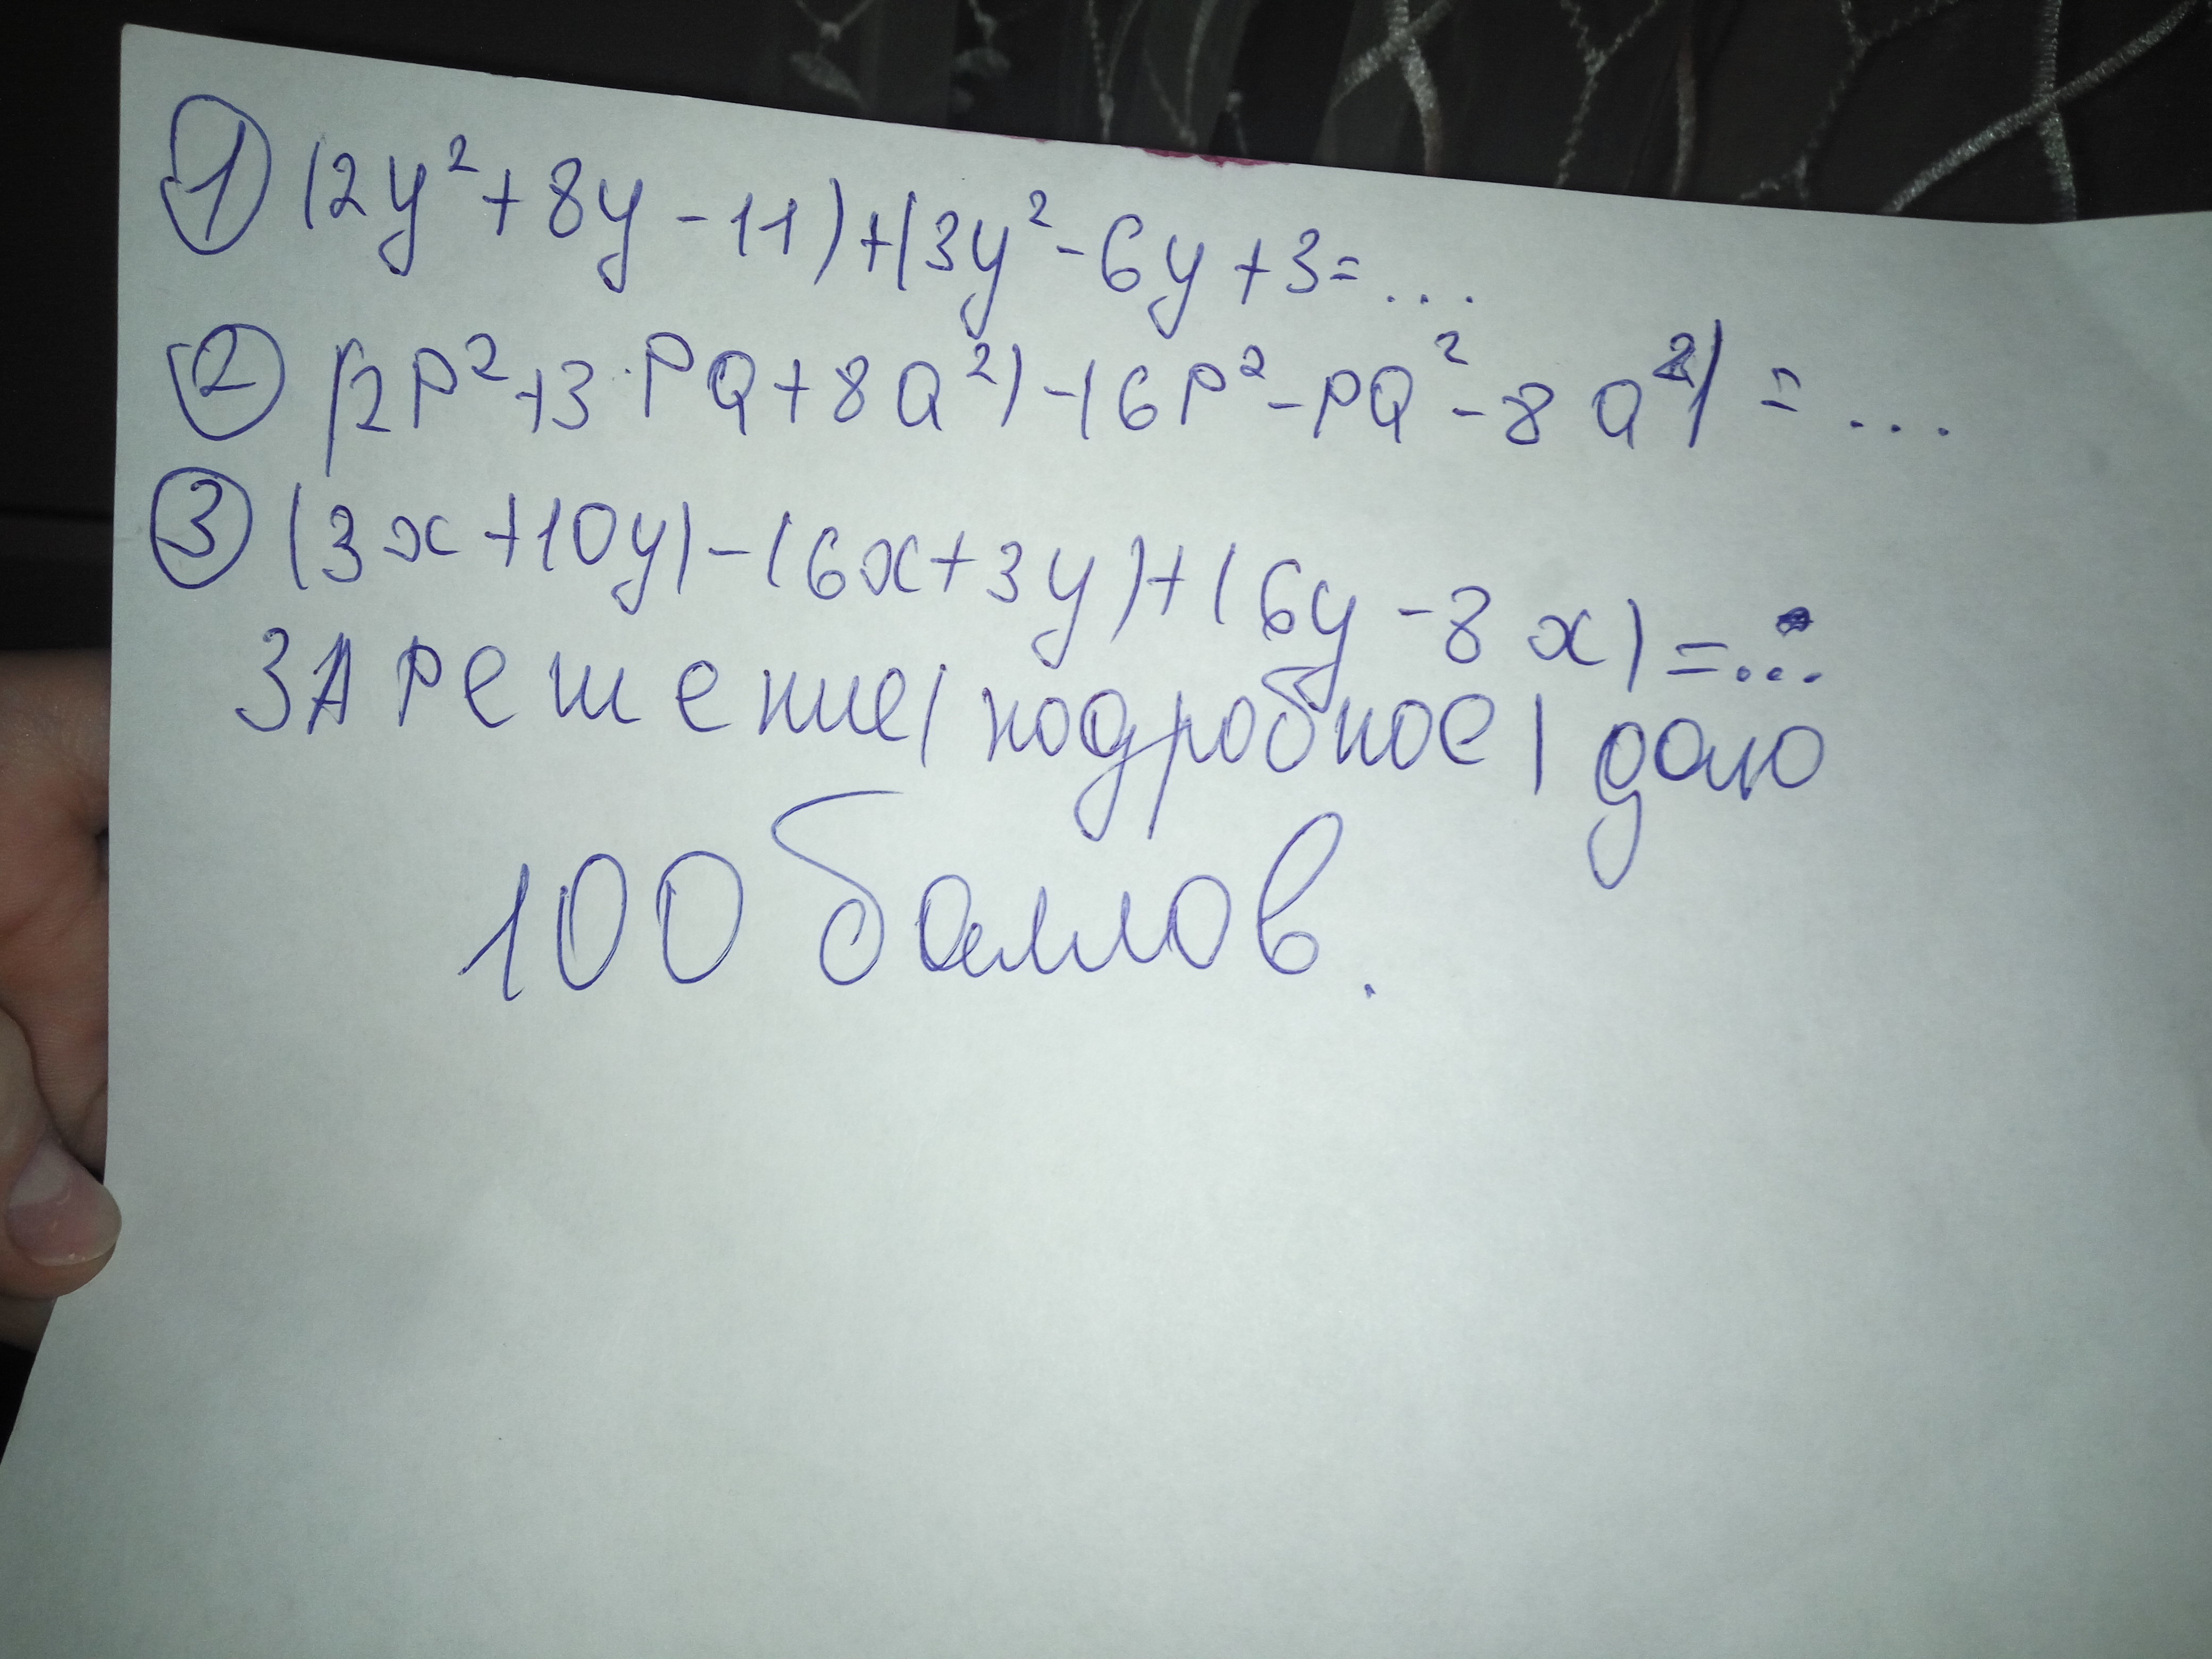 ① (2y²+8y-11)+(3y²-6y+3=...
② (2P²+3·PQ+8Q²)-(6P²-PQ²-8Q²)=...
③ (3x+10y)-(6x+3y)+(6y-8x)=...
ЗА РЕШЕНИЕ(подробное) даю
100 баллов.